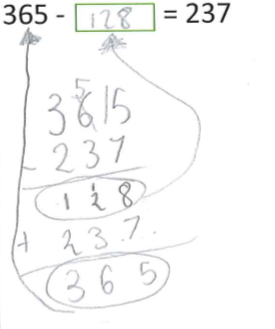 365 - 128 = 237
5
3 6 15
- 237
1 1 2 8
+ 23.7.
365